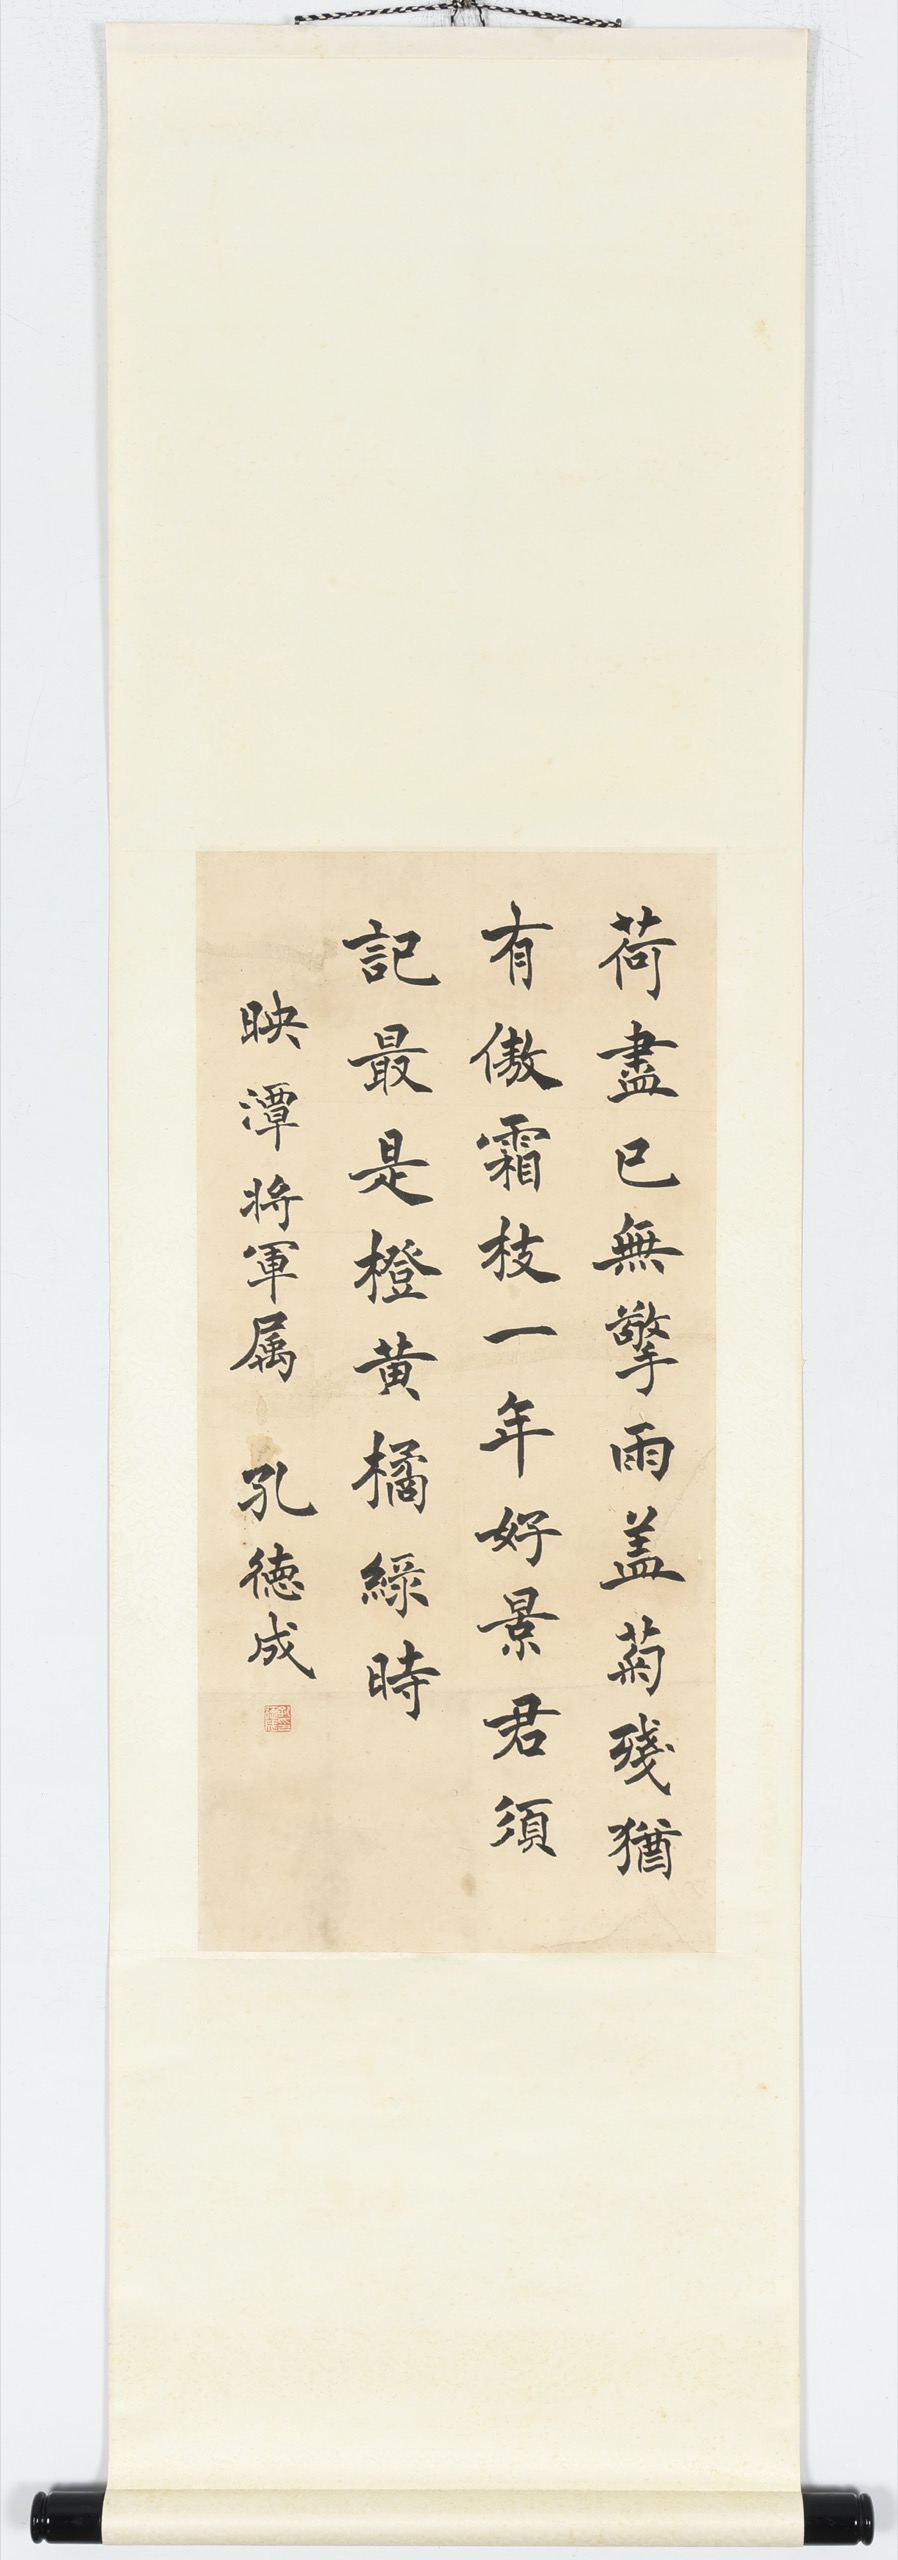 荷盡已無擎雨盖菊殘猶
有傲霜枝一年好景君須
記最是橙黄橘綠時
映潭將軍属 孔德成